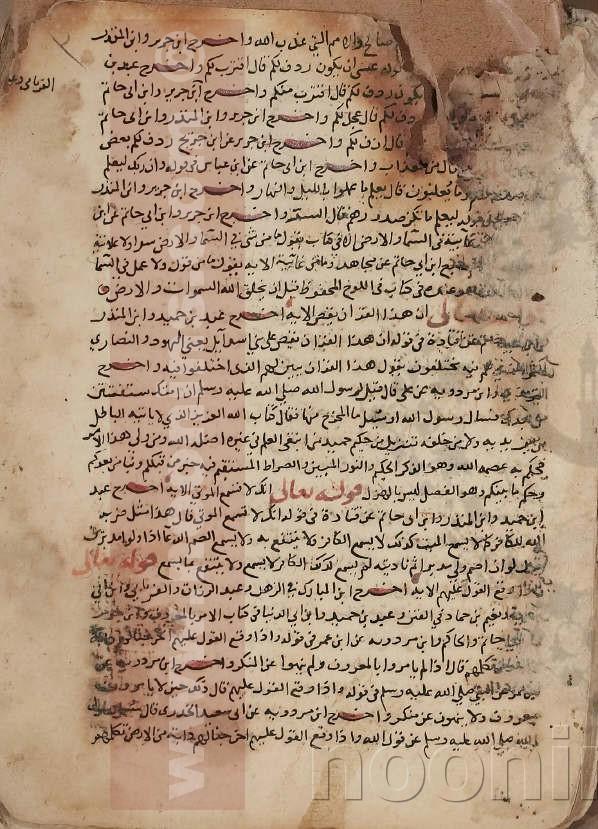 صالح والامم التي عذب الله واخرج ابن جرير وابن المنذر
قوله عسى ان يكون ردف لكم قال اقترب لكم واخرج عبد بن
الفريابي
يكون ردف لكم قال اقترب منكم واخرج ابن جرير وابن ابي حاتم
ردف لكم قال عجل لكم واخرج ابن جرير وابن المنذر وابن ابي حاتم
قال ازف لكم واخرج ابن جرير عن ابن جريج ردف لكم بعض
قال من العذاب واخرج ابن ابي حاتم عن ابن عباس في قوله وان ربك ليعلم
وما يعلنون قال يعلم ما عملوا بالليل والنهار واخرج ابن جرير وابن المنذر
في قوله ليعلم ما تكن صدورهم قال السر واخرج ابن جرير وابن ابي حاتم عن ابن
غائبة في السما والارض الا في كتاب يقول ما من شي في السما والارض سرا ولا علانية
ابن ابي حاتم عن مجاهد وما من غائبة الاية يقول ما من قول ولا عمل في السما
عنده في كتاب في اللوح المحفوظ قبل ان يخلق الله السموات والارض
تعالى ان هذا القران يقص الاية اخرج عبد بن حميد وابن المنذر
عن قتادة في قوله ان هذا القران يقص على بني اسرايل يعني اليهود والنصارى
فيه يختلفون يقول هذا القران يبين لهم الذي اختلفوا فيه واخرج
وابن مردويه عن علي قال قيل لرسول الله صلى الله عليه وسلم ان امتك ستفتتن
من بعدك فسال رسول الله او سئل ما المخرج منها فقال كتاب الله العزيز الذي لا ياتيه الباطل
من بين يديه ولا من خلفه تنزيل من حكيم حميد من ابتغى العلم في غيره اضله الله ومن ولي هذا الامر
فحكم به عصمه الله وهو الذكر الحكيم والنور المبين والصراط المستقيم فيه خبر من قبلكم ونبا من بعدكم
وحكم ما بينكم وهو الفصل ليس بالهزل قوله تعالى انك لا تسمع الموتى الاية اخرج عبد
ابن حميد وابن المنذر وابن ابي حاتم عن قتادة في قوله انك لا تسمع الموتى قال هذا مثل ضربه
الله للكافر كما لا يسمع الميت كذلك لا يسمع الكافر ولا ينتفع به ولا يسمع الصم الدعا اذا ولوا مدبرين
يقول لو ان اصم ولى مدبرا ثم ناديته لم يسمع كذلك الكافر لا يسمع ولا ينتفع بما يسمع قوله تعالى
واذا وقع القول عليهم الاية اخرج ابن المبارك في الزهد وعبد الرزاق والفريابي وابن ابي
ونعيم بن حماد في الفتن وعبد بن حميد وابن ابي الدنيا في كتاب الامر بالمعروف وابن جرير
ابي حاتم والحاكم وابن مردويه عن ابن عمر في قوله واذا وقع القول عليهم
تكلمهم قال اذا لم يامروا بالمعروف ولم ينهوا عن المنكر واخرج ابن مردويه عن
النبي صلى الله عليه وسلم في قوله واذا وقع القول عليهم قال ذلك حين لا يامرون
بمعروف ولا ينهون عن منكر واخرج ابن مردويه عن ابي سعيد الخدري قال
الله صلى الله عليه وسلم عن قول الله واذا وقع القول عليهم اخرجنا لهم دابة من الارض تكلمهم
noonin